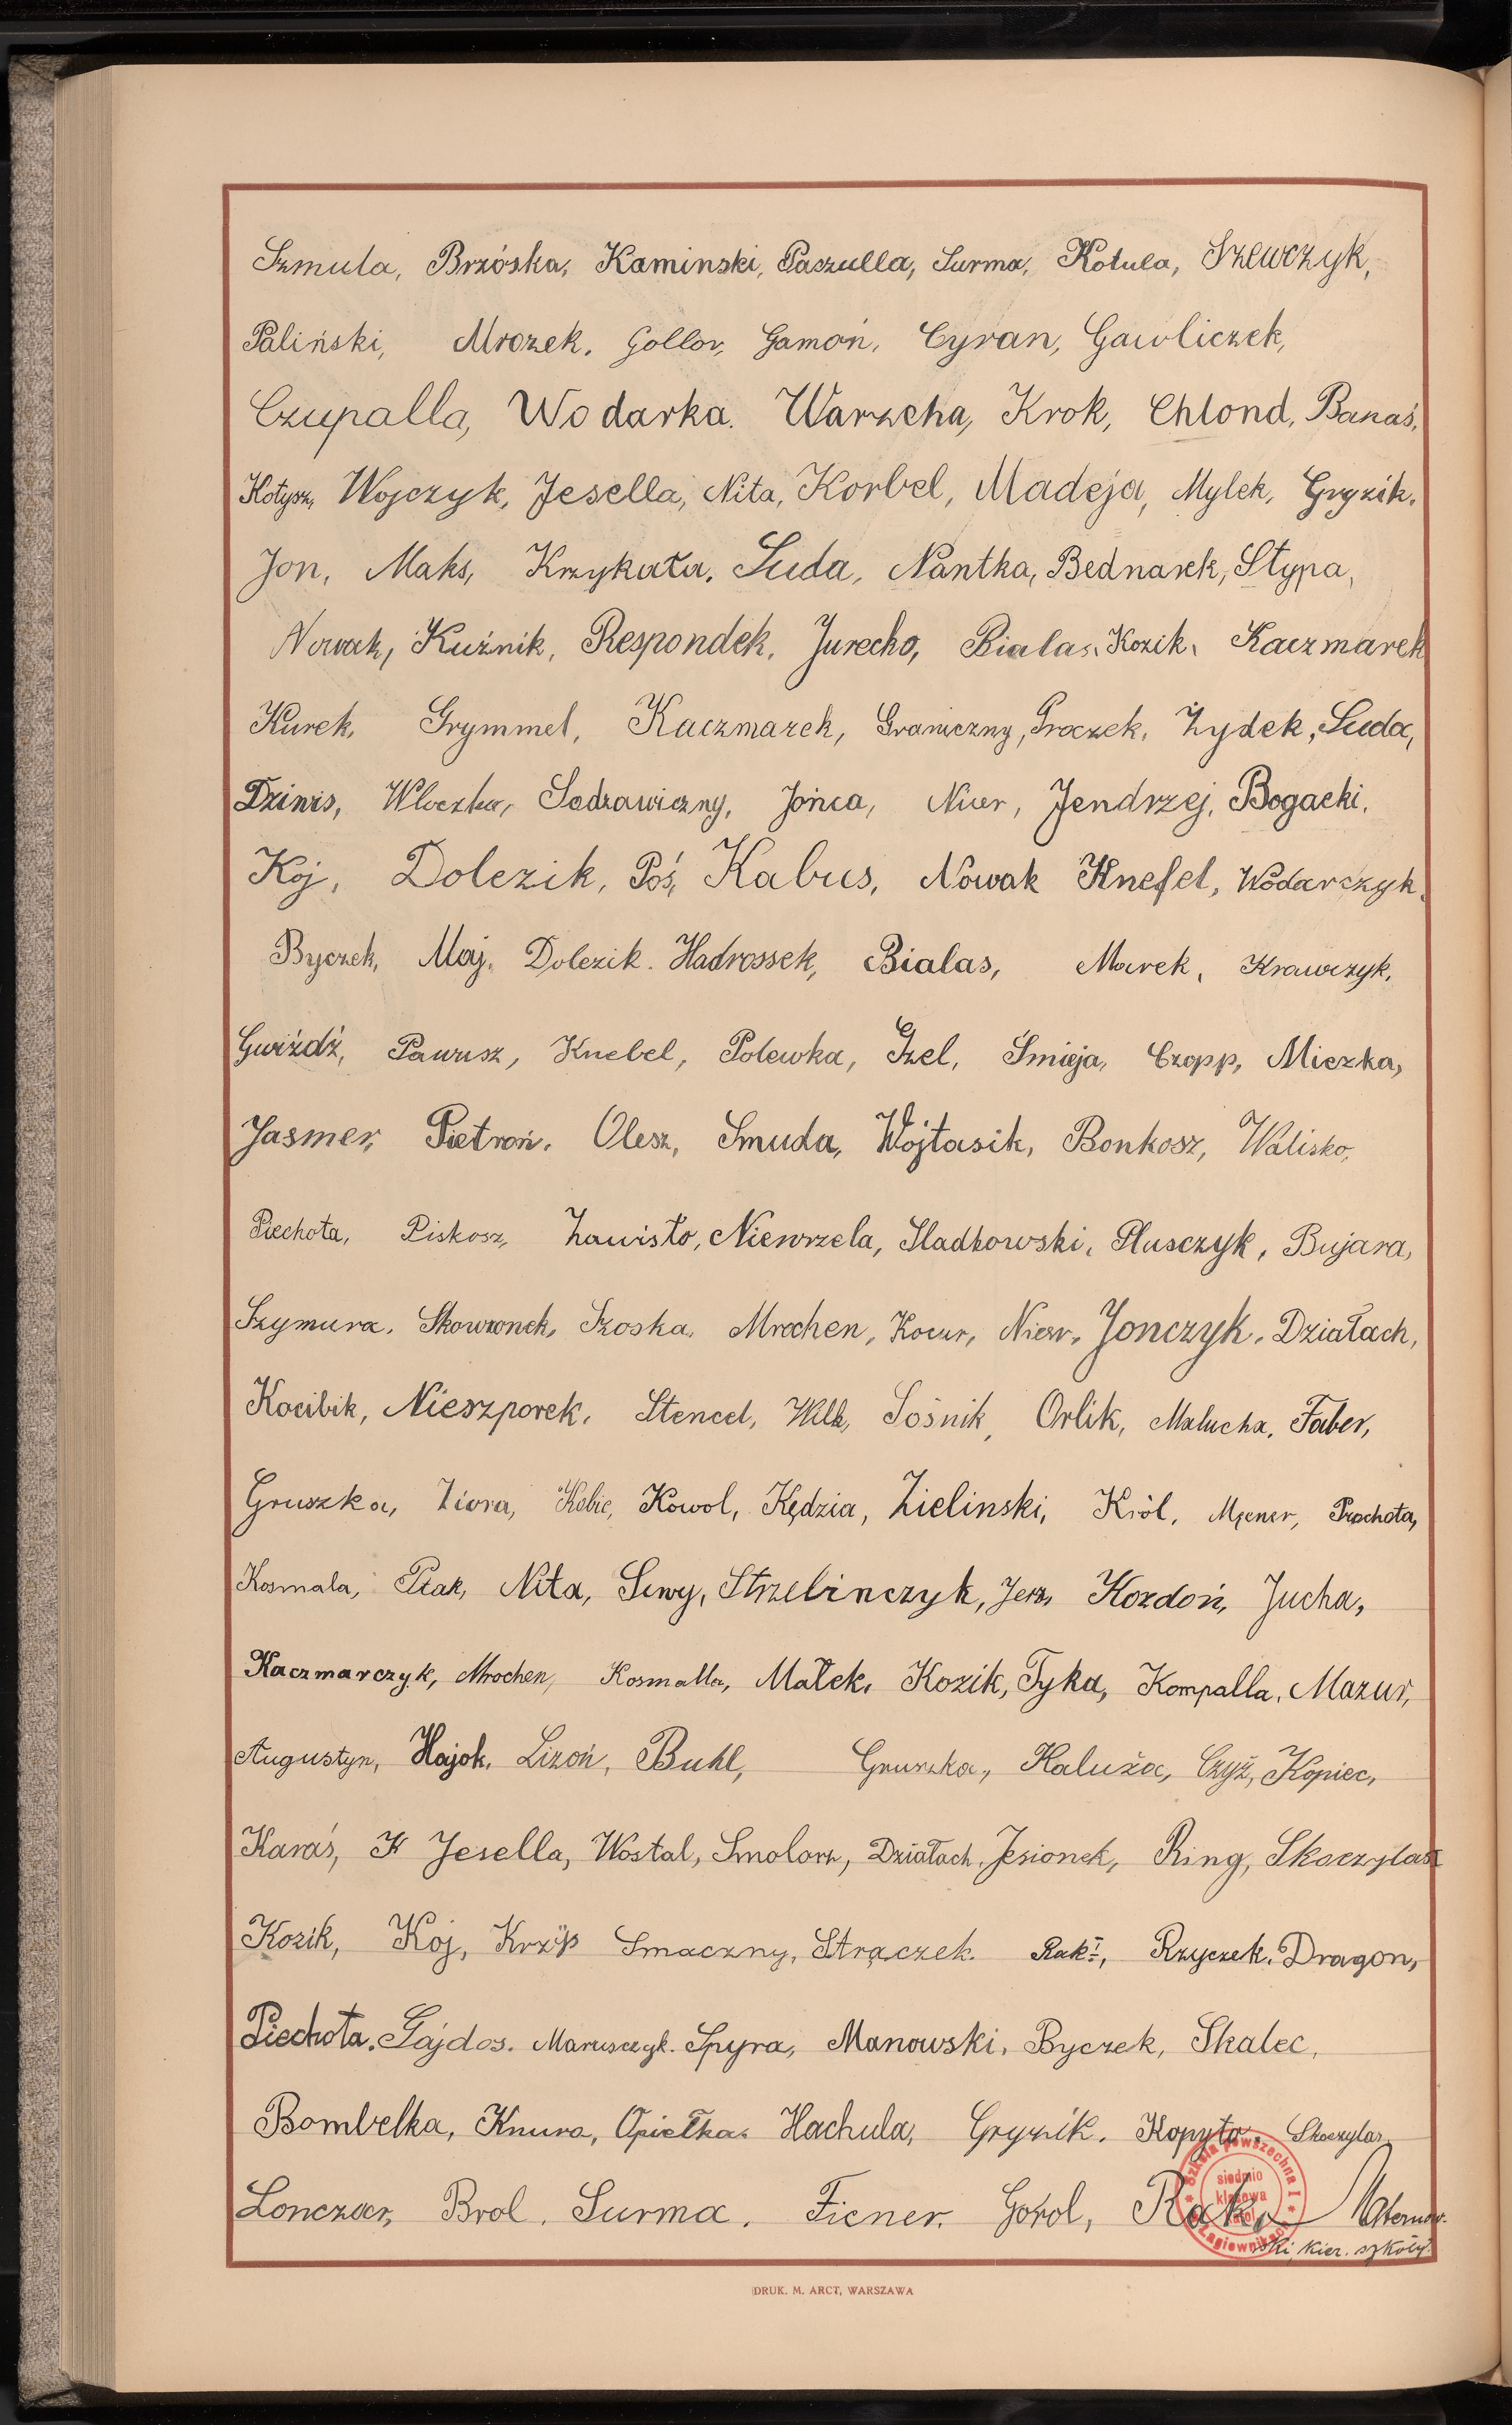 Szmula, Brzóska, Kaminski, Paszulla, Surma, Kotula, Szewczyk,
Paliński, Mrozek, Gollor, Gamoń, Cyran, Gawliczek,
Czupalla, Wodarka. Warzecha, Krok, Chlond, Banaś,
Kotysz, Wojczyk, Jesella, Nita, Korbel, Madeja, Mylek, Gryzik.
Jon, Maks, Krzykała, Suda, Nantka, Bednarek, Stypa,
Nowak, Kuźnik, Respondek, Jurecko, Bialas, Kozik, Kaczmarek
Kurek, Grymmel, Kaczmarek, Graniczny, Proczek, Żydek, Suda,
Dzinis, Wloczka, Sadzawiczny, Jońca, Nier, Jendrzej, Bogacki,
Koj, Dolezik, Poś, Kabus, Nowak Knefel, Wodarczyk.
Byczek, Maj, Dolezik. Hadrossek, Bialas, Marek, Krawczyk,
Gwiźdź, Pawusz, Knebel, Polewka, Gzel, Śmieja, Czopp, Mieszka,
Jasmer, Pietroń, Olesz, Smuda, Wojtasik, Bonkosz, Walisko,
Piechota, Piskosz, Zawisło, Niewrzela, Sladkowski, Plusczyk, Bujara,
Szymura, Skowronek, Szoska, Mrochen, Kocur, Niesr, Jonczyk, Działach,
Kocibik, Nieszporek, Stencel, Wilk, Sośnik, Orlik, Malucha, Faber,
Gruszka, Ziora, Kobic, Kowol, Kędzia, Zielinski, Król, Męcner, Prochota,
Kosmala, Ptak, Nita, Siwy, Strzelinczyk, Jerz, Kozdoń, Jucha,
Kaczmarczyk, Mrochen, Kosmalla, Małek, Kozik, Tyka, Kompalla, Mazur,
Augustyn, Hajok, Lizoń, Buhl, Gruszka, Kaluża, Czyż, Kopiec,
Karaś, K Jesella, Wostal, Smolorz, Działach, Jesionek, Ring, Skoczylas
Kozik, Koj, Krzyś Smaczny, Strączek. Rak I, Rzyczek, Dragon,
Piechota, Gajdos. Marusczyk. Spyra, Manowski, Byczek, Skalec,
Bombelka, Knura, Opiełka, Hachula, Gryzik, Kopyto, Skoczylas,
Lonczar, Brol, Surma, Ficner, Gorol, Rak, Maternow-
ski, kier. szkoły.
Szkoła Powszechna I
siedmio
klasowa
Łagiewnikach
DRUK. M. ARCT, WARSZAWA